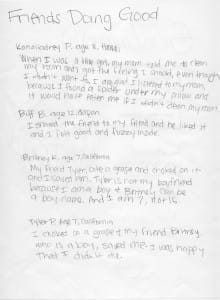 Friends Doing Good
P. age 8,
When I was a little girl, my mom told me to clean
my room and I got the feeling I should, even though
I didn't want to. I am glad I listened to my mom,
because I found a spider under my pillow and
it would have me if I didn't clean my room.
Biff B. age 12,
I shared with friend to my friend and he liked it
and I felt good and fuzzy inside.
Britney K. age 7, California
My friend Tyler, ate a grape and choked on it
and I saved him. Tyler is not my boyfriend
because I am a boy & Britney can be
a boy name. And I am 7, nor is
Tyler P. Age 7, California
I choked on a grape & my friend
who is a boy, saved me. I was happy
that I didn't die.